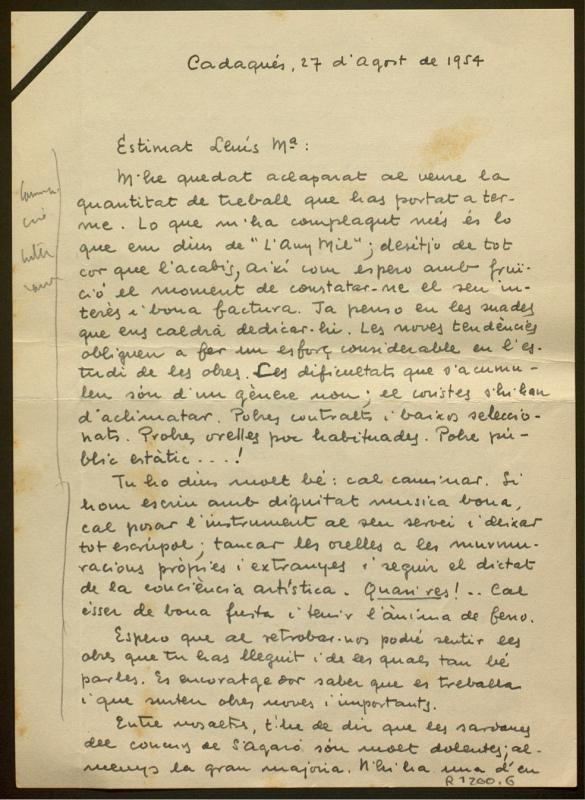 Cadaqués, 27 d'Agost de 1954
Estimat Lluís Mª:
M'he quedat aclaparat al veure la
quantitat de treball que has portat a ter-
me. Lo que m'ha complagut més és lo
que em dius de "L'Any Mil"; desitjo de tot
cor que l'acabis, així com espero amb fruï-
ció el moment de constatar-ne el seu in-
terès i bona factura. Ja penso en les suades
que ens caldrà dedicar-hi. Les noves tendències
obliguen a fer un esforç considerable en l'es-
tudi de les obres. Les dificultats que s'acumu-
len són d'un gènere nou; el coristes s'hi han
d'aclimatar. Pobres contralts i baixos seleccio-
nats. Probres orelles poc habituades. Pobre pú-
blic estàtic . . . . !
Tu ho dius molt bé: cal caminar. Si
hom escriu amb dignitat musica bona,
cal posar l'instrument al seu servei i deixar
tot escrúpol; tancar les orelles a les murmu-
racions pròpies i extranyes i seguir el dictat
de la conciència artística. Quasi res! . . Cal
ésser de bona fusta i tenir l'ànima de ferro.
Espero que al retrobar-nos podré sentir les
obres que tu has lleguit i de les quals tan bé
parles. Es encoratgedor saber que es treballa
i que surten obres noves i importants.
Entre nosaltres, t'he de dir que les sardanes
del concurs de S'Agaró són molt dolentes; al-
menys la gran majoria. N'hi ha una d'en
R 1200.6